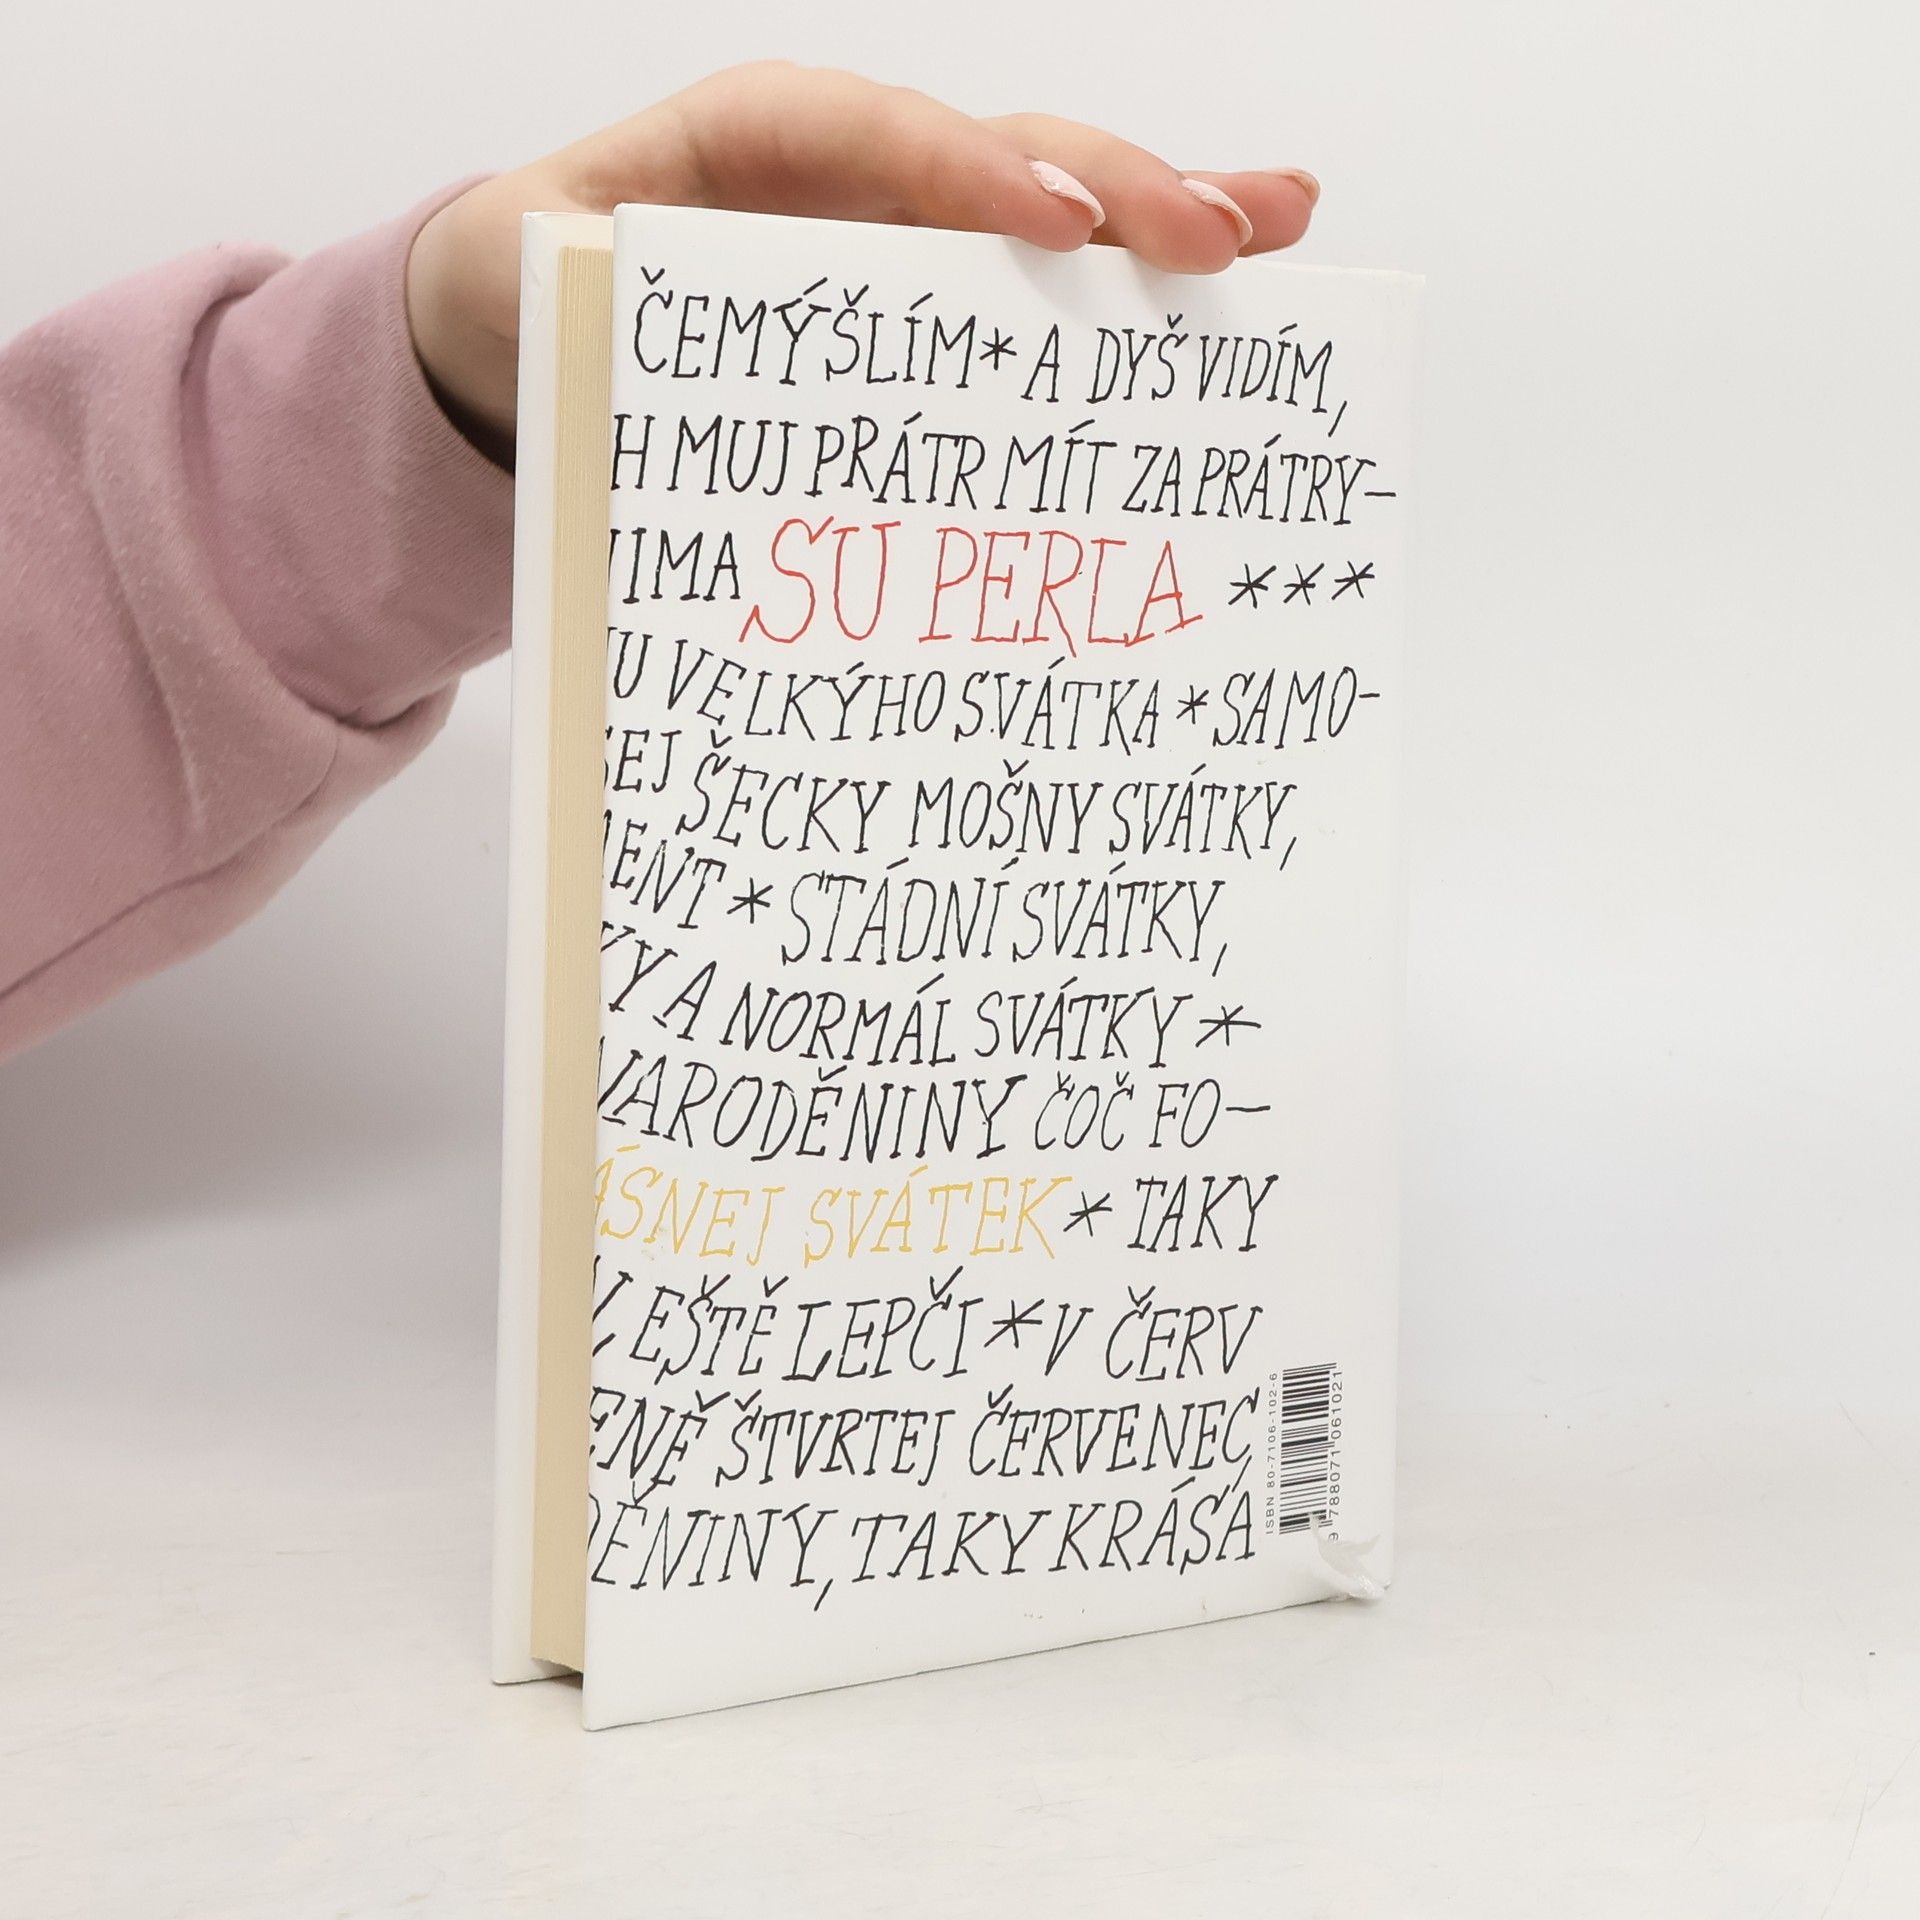 ČEMÝŠLÍM * A DYŠ VIDÍM,
H MUJ PRÁTR MÍT ZA PRÁTRY–
IMA SU PERLA ***
U VELKÝHO SVÁTKA * SAMO–
EJ ŠECKY MOŠNY SVÁTKY,
ENT * STÁDNÍ SVÁTKY,
Y A NORMÁL SVÁTKY *
NARODĚNINY ČOČ FO–
ÁSNEJ SVÁTEK * TAKY
EŠTĚ LEPČI * V ČERV
ENĚ ŠTVRTEJ ČERVENEC,
DĚNINY, TAKY KRÁSÁ
ISBN 80-7106-102-6
9 788071 061021